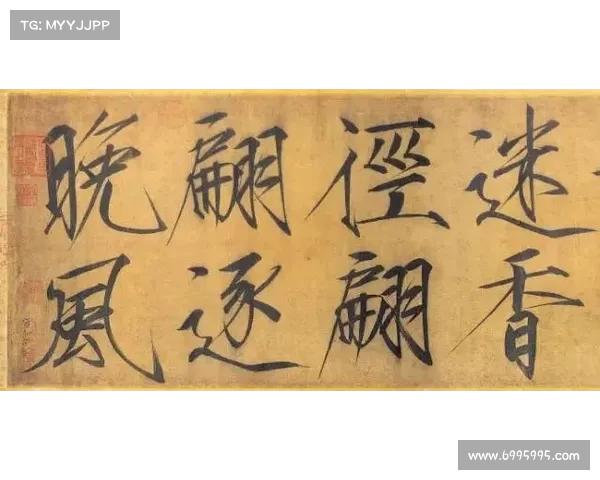 TG: MYYJJPP
迷香
徑翩
翩逐
晚風
www.6995995.com